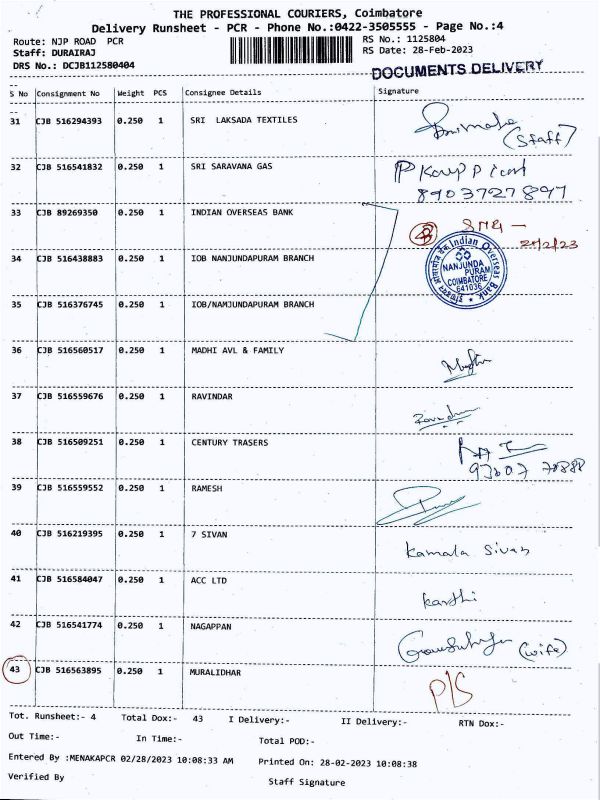 THE PROFESSIONAL COURIERS, Coimbatore
Delivery Runsheet - PCR - Phone No.:0422-3505555 - Page No.:4
Route: NJP ROAD PCR RS No.: 1125804
Staff: DURAIRAJ RS Date: 28-Feb-2023
DRS No.: DCJB112580404
DOCUMENTS DELIVERY
S No Consignment No Weight PCS Consignee Details Signature
31 CJB 516294393 0.250 1 SRI LAKSADA TEXTILES (Staff)
32 CJB 516541832 0.250 1 SRI SARAVANA GAS
8903727897
33 CJB 89269350 0.250 1 INDIAN OVERSEAS BANK
Indian Overseas Bank
NANJUNDA
PURAM
COIMBATORE
641036
34 CJB 516438883 0.250 1 IOB NANJUNDAPURAM BRANCH
35 CJB 516376745 0.250 1 IOB/NANJUNDAPURAM BRANCH
36 CJB 516560517 0.250 1 MADHI AVL & FAMILY
37 CJB 516559676 0.250 1 RAVINDAR
38 CJB 516509251 0.250 1 CENTURY TRASERS
39 CJB 516559552 0.250 1 RAMESH
40 CJB 516219395 0.250 1 7 SIVAN Kamala Sivan
41 CJB 516584047 0.250 1 ACC LTD Karthi
42 CJB 516541774 0.250 1 NAGAPPAN (wife)
43 CJB 516563895 0.250 1 MURALIDHAR P/S
Tot. Runsheet:- 4 Total Dox:- 43 I Delivery:- II Delivery:- RTN Dox:-
Out Time:- In Time:- Total POD:-
Entered By :MENAKAPCR 02/28/2023 10:08:33 AM Printed On: 28-02-2023 10:08:38
Verified By Staff Signature